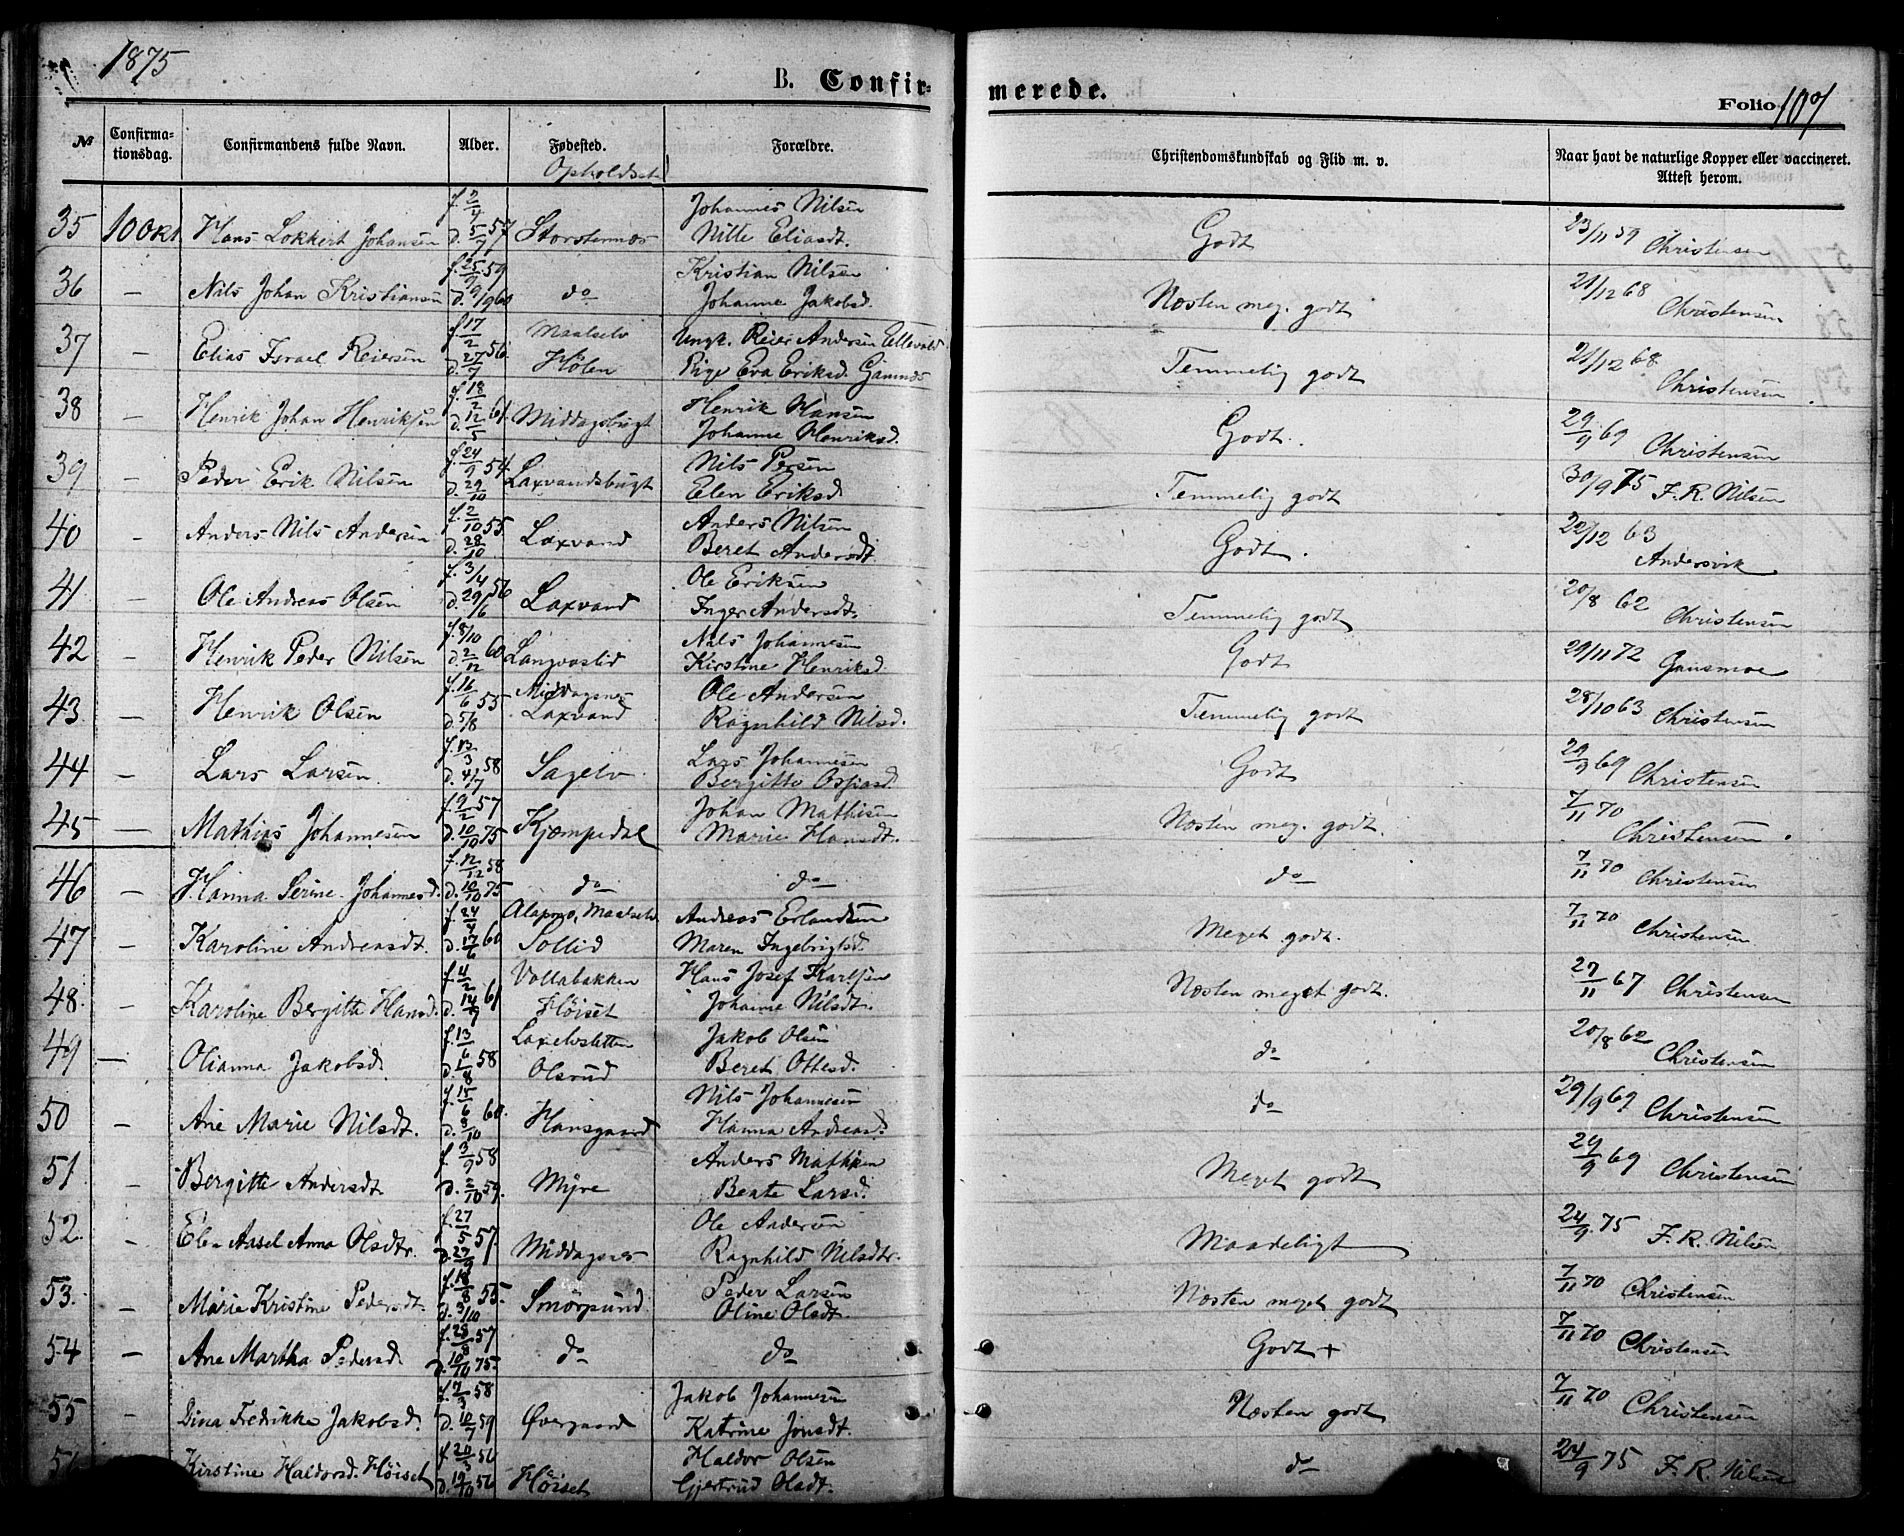 1875
B. Confir- merede.
Folio 107
№ Confirma- tionsdag. Confirmandens fulde Navn. Alder. Fødested. Forældre. Christendomskundskab og Flid m. v. Naar havt de naturlige Kopper eller vaccineret. Attest herom.
Opholdsst
35 10 Okt Hans Lokkert Johansen f. 2/4 d. 5/7 57 Storstennæs Johannes Nilsen Nitte Eliasdt. Godt 23/11 59 Christensen
36 — Nils Johan Kristiansen f. 25/9 59 d. 9/9 60 do Kristian Nilsen Johanne Jakobsd. Næsten meg. godt 21/12 68 Christensen
37 — Elias Israel Reiersen f. 17/2 d. 27/7 56 Maalselv Hølen Ungk. Reier Andersen Ellevold Pige Eva Eriksd. Gamnæs Temmelig godt 21/12 68 Christensen
38 — Henrik Johan Henriksen f. 18/2 d. 12/5 61. Middagsbugt Henrik Hansen Johanne Henriksd. Godt. 29/9 69 Christensen
39 — Peder Erik Nilsen f. 24/9 54. d. 29/10 Laxvandsbugt Nils Persen Elen Eriksd Temmelig godt 30/9 75 F. R. Nilsen
40 — Anders Nils Andersen f. 2/10 55. d. 28/10 Laxvand Anders Nilsen Beret Andersdt. Godt. 22/12 63 Andersvik
41 — Ole Andreas Olsen f. 3/4 d. 29/6 56 Laxvand Ole Eriksen Inger Andersdt. Temmelig godt 20/8 62 Christensen
42 — Henrik Peder Nilsen f. 8/10 d. 2/12 60 Langvaslid Nils Johannesen Kirstine Henriksd. Godt 29/11 72 Gausmoe
43 — Henrik Olsen f. 16/6 55 d. 5/8 Middagsnes Laxvand Ole Andersen Ragnhild Nilsd. Temmelig godt 28/10 63 Christensen
44 — Lars Larsen f. 13/3 58 d. 4/7 Sagelv Lars Johannesen Bergitte Ospasd Godt 29/9 69 Christensen
45 — Mathias Johannesen f. 9/2 57 d. 10/10 75 Kjæmpedal Johan Mathisen Marie Hansdt. Næsten meg. godt. 7/11 70 Christensen
46 — Hanna Serine Johannesd. f. 12/12 58 d. 10/10 75 do do Do 7/11 70 Christensen
47 — Karoline Andreasdt. f. 24/4 d. 17/6 60 Alapmo, Maalselv Sollid Andreas Erlandsen Maren Ingebrigtsd. Meget godt. 7/11 70 Christensen
48. — Karoline Bergitte Hansd. f. 4/2 61 d. 14/7 Vollabakken Høiset Hans Josef Karlsen Johanne Nilsdt. Næsten meget godt. 27/11 67 Christensen
49 — Olianna Jakobsd. f. 13/6 d. 1/8 58 Laxelvsletten Olsrud Jakob Olsen Beret Ottesd. do 20/8 62 Christensen
50 — Ane Marie Nilsdt. f. 15/6 60. d. 8/10 Hansgaard Nils Johannesen Hanna Andreasd. do 29/9 69 Christensen
51 — Bergitte Andersdt f. 3/9 58 d. 2/10 59. Myre Anders Mathisen Beate Larsd. Meget godt 29/9 69 Christensen
52. — Elen Aasel Anna Olsdtr. f. 27/5 57. d. 27/9 Middagsnes Ole Andersen Ragnhild Nilsdtr. Maadeligt 24/9 75 F. R. Nilsen
53. — Marie Kristine Pedersdt. f. 18/8 55. d. 3/10 Smörpund. Peder Larsen Oline Olsdt. Næsten meget godt 7/11 70 Christensen
54 — Ane Martha Pedersd. f. 28/8 57 d. 10/10 75. do do Godt + 7/11 70 Christensen
55 — Dina Fredrikke Jakobsd. f. 7/3 58 d. 10/7 59 Øvergaard Jakob Johannesen Katrine Jonsdt. Næsten godt 7/11 70 Christensen
Kirstine Haldorsd. Høiset f. 20/3 56 d. 19/10 56 Høiset Haldor Olsen Gjertrud Olsdt. do 24/9 75 F. R. Nilsen